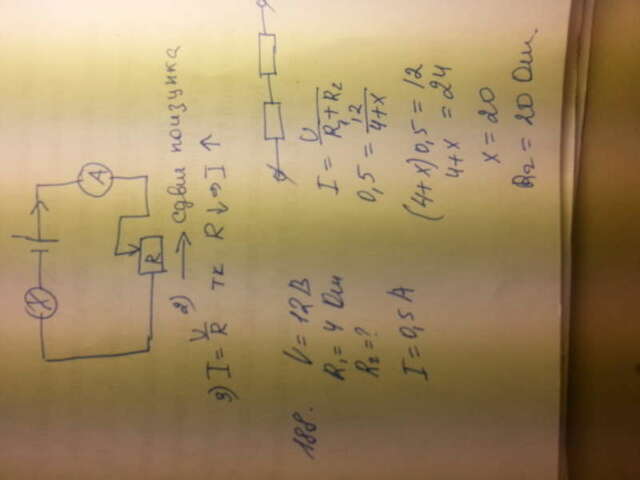 A
R
2) → сдвиг ползунка
3) I = V/R тк R ↓ ⇒ I ↑
188. V = 12 В
R₁ = 4 Ом
R₂ = ?
I = 0,5 А
I = V/(R₁ + R₂)
0,5 = 12/(4+x)
(4+x)0,5 = 12
4+x = 24
x = 20
R₂ = 20 Ом.